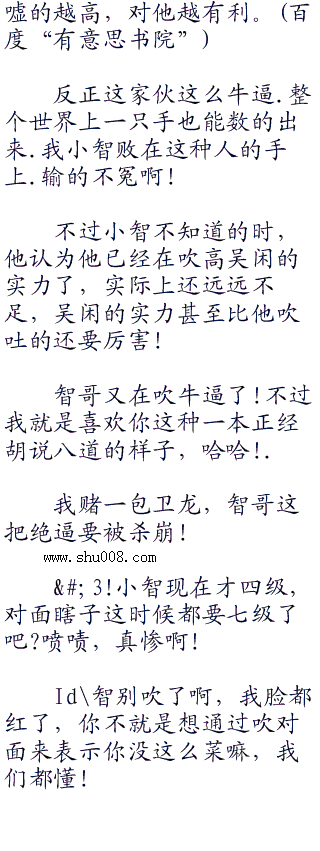 嘘的越高，对他越有利。（百
度“有意思书院”）
反正这家伙这么牛逼.整
个世界上一只手也能数的出
来.我小智败在这种人的手
上.输的不冤啊!
不过小智不知道的时，
他认为他已经在吹高吴闲的
实力了，实际上还远远不
足，吴闲的实力甚至比他吹
吐的还要厉害!
智哥又在吹牛逼了!不过
我就是喜欢你这种一本正经
胡说八道的样子，哈哈!.
我赌一包卫龙，智哥这
把绝逼要被杀崩!
www.shu008.com
&#; 3!小智现在才四级，
对面瞎子这时候都要七级了
吧?喷啧，真惨啊!
Id\智别吹了啊，我脸都
红了，你不就是想通过吹对
面来表示你没这么菜嘛，我
们都懂!